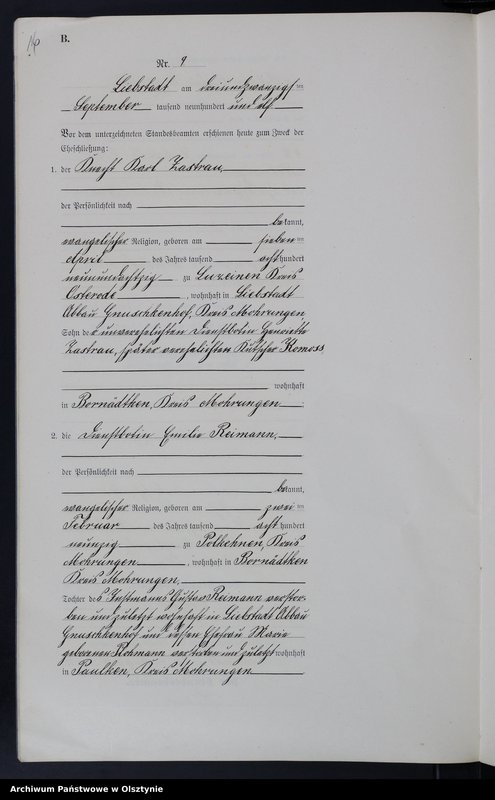 B.
Nr. 9
Liebstadt am dreiundzwanzigsten
September tausend neunhundert und elf
Vor dem unterzeichneten Standesbeamten erschienen heute zum Zweck der
Eheschließung:
1. der Knecht Karl Zastrau,
der Persönlichkeit nach
bekannt,
evangelischer Religion, geboren am sieben ten
April des Jahres tausend acht hundert
neunundachtzig zu Luzeinen Kreis
Osterode, wohnhaft in Liebstadt
Abbau Gnuschkenhof, Kreis Mohrungen
Sohn der unverehelichten Dienstbotin Henriette
Zastrau, später verehelichten Kutscher Komoss
wohnhaft
in Bornädtken, Kreis Mohrungen.
2. die Dienstbotin Emilie Reimann,
der Persönlichkeit nach
bekannt,
evangelischer Religion, geboren am zwei ten
Februar des Jahres tausend acht hundert
neunzig zu Polkehnen, Kreis
Mohrungen, wohnhaft in Bornädtken
Kreis Mohrungen,
Tochter des Instmanns Gustav Reimann verstor-
ben und zuletzt wohnhaft in Liebstadt Abbau
Gnuschkenhof und dessen Ehefrau Marie
geborenen verstorben und zuletzt wohnhaft
in Paulken, Kreis Mohrungen.
Archiwum Państwowe w Olsztynie